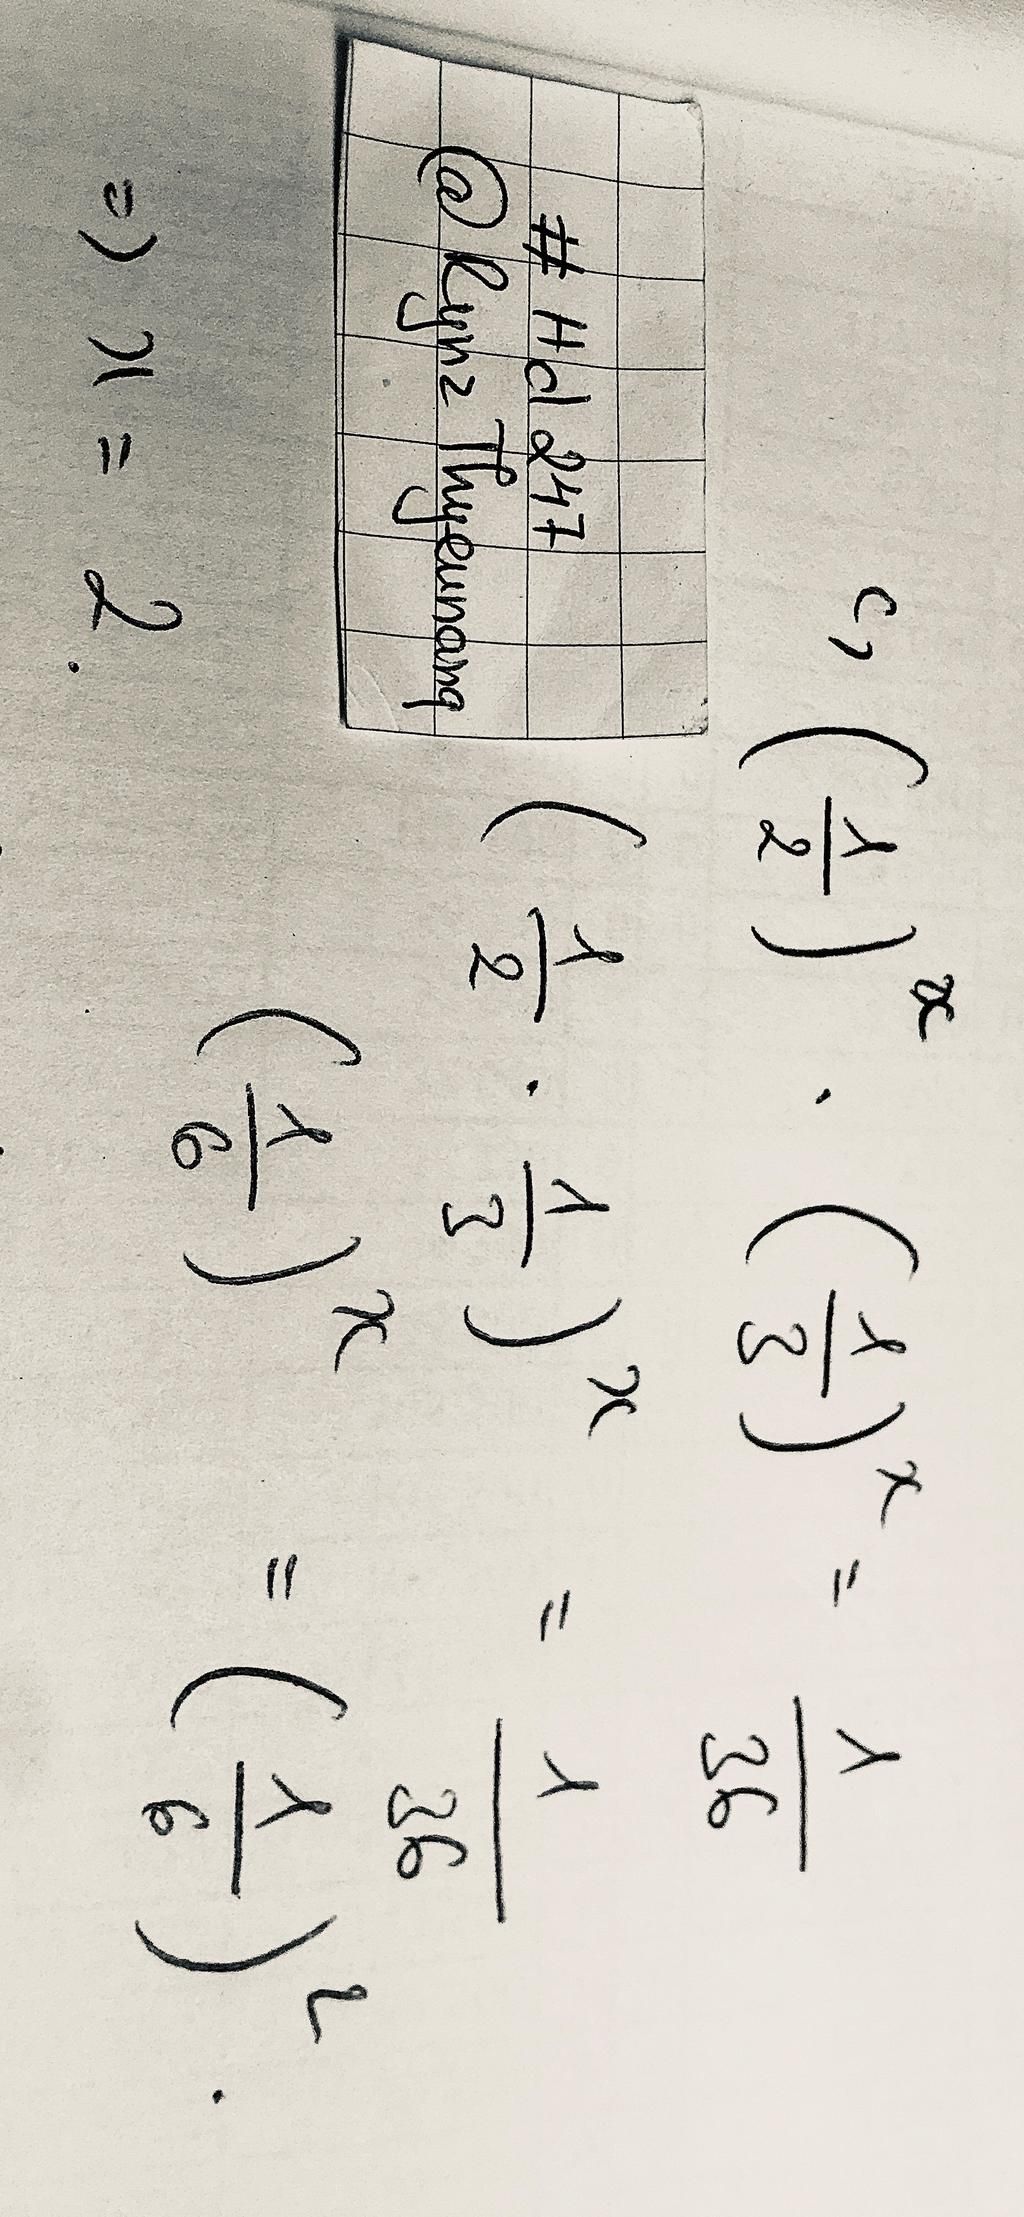 c, (1/2)^x . (1/3)^x = 1/36
(1/2 . 1/3)^x = 1/36
(1/6)^x = (1/6)^2 .
=) x = 2.
# Hd 247
@ Rynz Thyeunang